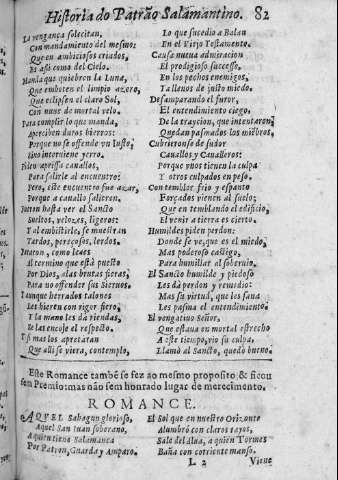 Historia do Patrão Salamantino. 82
La vengança solecitan,
Con mandamiento del mesmo:
Que en ambiciosos criados,
Es assi como del Cielo.
Manda que quiebren la Luna,
Que emboten el limpio azero,
Que eclipsen el claro Sol,
Con nuue de mortal velo.
Para complir lo que manda,
Aperciben duros hierros:
Porque no se offende vn Iusto,
Sino interuiene yerro.
cauallos,
Para salirle al encuentro:
Pero, este encuentro fue azar,
Porque a cauallo salieron.
hasta ver el Sancto
Sueltos, velozes, ligeros:
Y al embistirle, se muestran
Tardos, pereçosos, lerdos.
como leues
Al termino que está puesto
Por Dios, a las brutas fieras,
Para no offender sus Sieruos.
Aunque herrados talones
Les hieren con rigor fiero,
Y la mano les dá riendas,
Se las encoje el respecto.
Y mas los apretaran
Que alli se viera, contemplo,
Lo que sucedio a Balan
En el Viejo Testamento.
Causa nueua admiracion
El prodigioso sucesso,
En los pechos enemigos,
Ya llenos de justo miedo.
Desamparando el furor,
El entendimiento ciego
De la trayçion, que intentaron
Quedan pasmados los miẽbros,
Cubrieronse de sudor
Cauallos y Caualleros:
Porque vnos tienen la culpa
Y otros culpados en peso.
Con temblor frio y espanto
Forçados vienen al suelo;
Que en temblando el edificio,
El venir a tierra es cierto.
Humildes piden perdon:
Donde se ve, que es el miedo,
Mas poderoso castigo,
Para humillar al soberuio.
El Sancto humilde y piedoso
Les dá perdon y remedio:
Mas su virtud, que los sana
Les pasma el entendimiento.
El vengatiuo Señor,
Que estaua en mortal estrecho
A este tiempo, vio su culpa,
Llamò al Sancto, quedò bueno.
Este Romance tambẽ se fez ao mesmo proposito, & ficou
sem Premio: mas não sem honrado lugar de merecimento.
ROMANCE.
AQVEL Sahagun glorioso,
Aquel San Iuan soberano,
A quien tiene Salamanca
Por Patron, Guarda y Amparo.
El Sol que en nuestro Orizonte
Alumbró con claros rayos,
Sale del Alua, a quien Tormes
Baña con corriente manso.
L 2 Viene